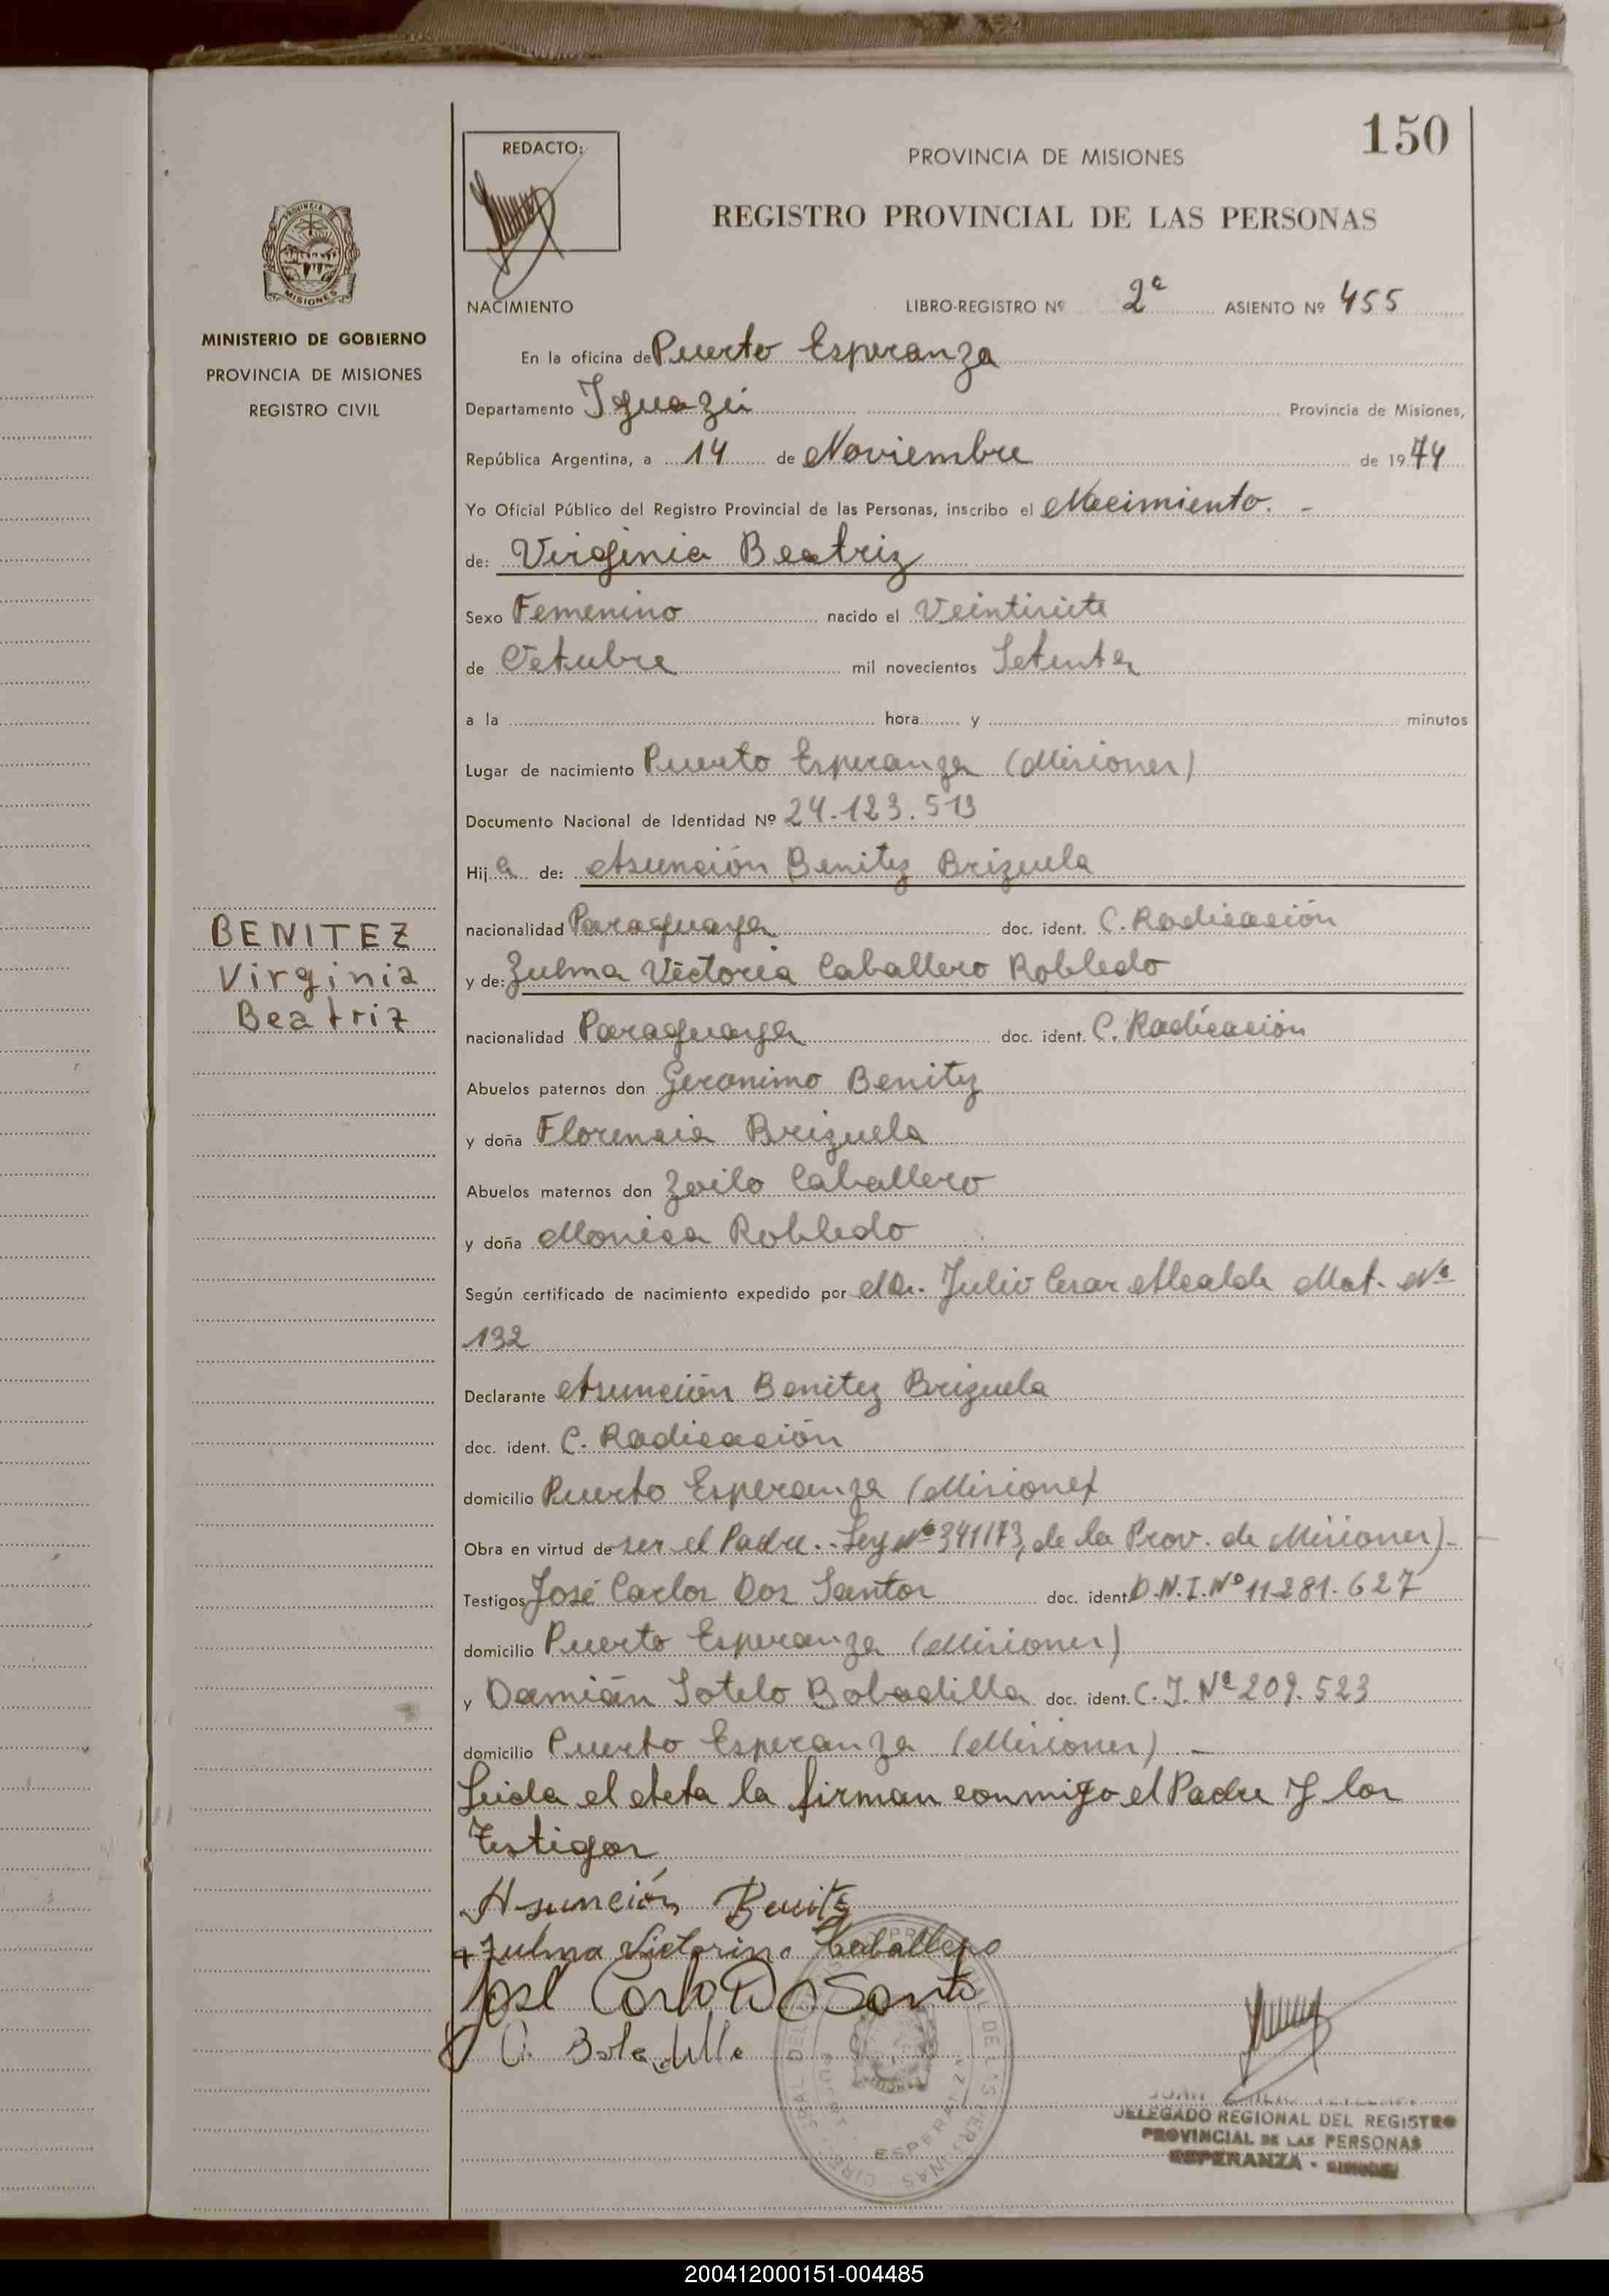 150
REDACTO:
PROVINCIA DE MISIONES
REGISTRO PROVINCIAL DE LAS PERSONAS
PROVINCIA DE
MISIONES
MINISTERIO DE GOBIERNO
PROVINCIA DE MISIONES
REGISTRO CIVIL
NACIMIENTO LIBRO-REGISTRO Nº 2ª ASIENTO Nº 455
En la oficina de Puerto Esperanza
Departamento Iguazú Provincia de Misiones,
República Argentina, a 14 de Noviembre de 1974
Yo Oficial Público del Registro Provincial de las Personas, inscribo el Nacimiento. -
de: Virginia Beatriz
Sexo Femenino nacido el Veintisiete
de Octubre mil novecientos Setenta
a la hora y minutos
Lugar de nacimiento Puerto Esperanza (Misiones)
Documento Nacional de Identidad Nº 24.123.513
Hij a de: Asunción Benitez Brizuela
BENITEZ
Virginia
Beatriz
nacionalidad Paraguaya doc. ident. C. Radicación
y de: Zulma Victoria Caballero Robledo
nacionalidad Paraguaya doc. ident. C. Radicación
Abuelos paternos don Geronimo Benitez
y doña Florencia Brizuela
Abuelos maternos don Zoilo Caballero
y doña Monica Robledo
Según certificado de nacimiento expedido por el Dr. Julio Cesar Alcalde Mat. Nº
132
Declarante Asunción Benitez Brizuela
doc. ident. C. Radicación
domicilio Puerto Esperanza (Misiones)
Obra en virtud de ser el Padre.- Ley Nº 341173, de la Prov. de Misiones).-
Testigos José Carlos Dos Santos doc. ident. D.N.I. Nº 11281.627
domicilio Puerto Esperanza (Misiones)
y Damián Sotelo Bobadilla doc. ident. C.I. Nº 209.523
domicilio Puerto Esperanza (Misiones) -
Leida el Acta la firman conmigo el Padre y los
Testigos
Asunción Benitz
Zulma Victorina Caballero
José Carlo Do Santo
DELEGADO REGIONAL DEL REGISTRO
PROVINCIAL DE LAS PERSONAS
ESPERANZA
ESPERANZA
200412000151-004485